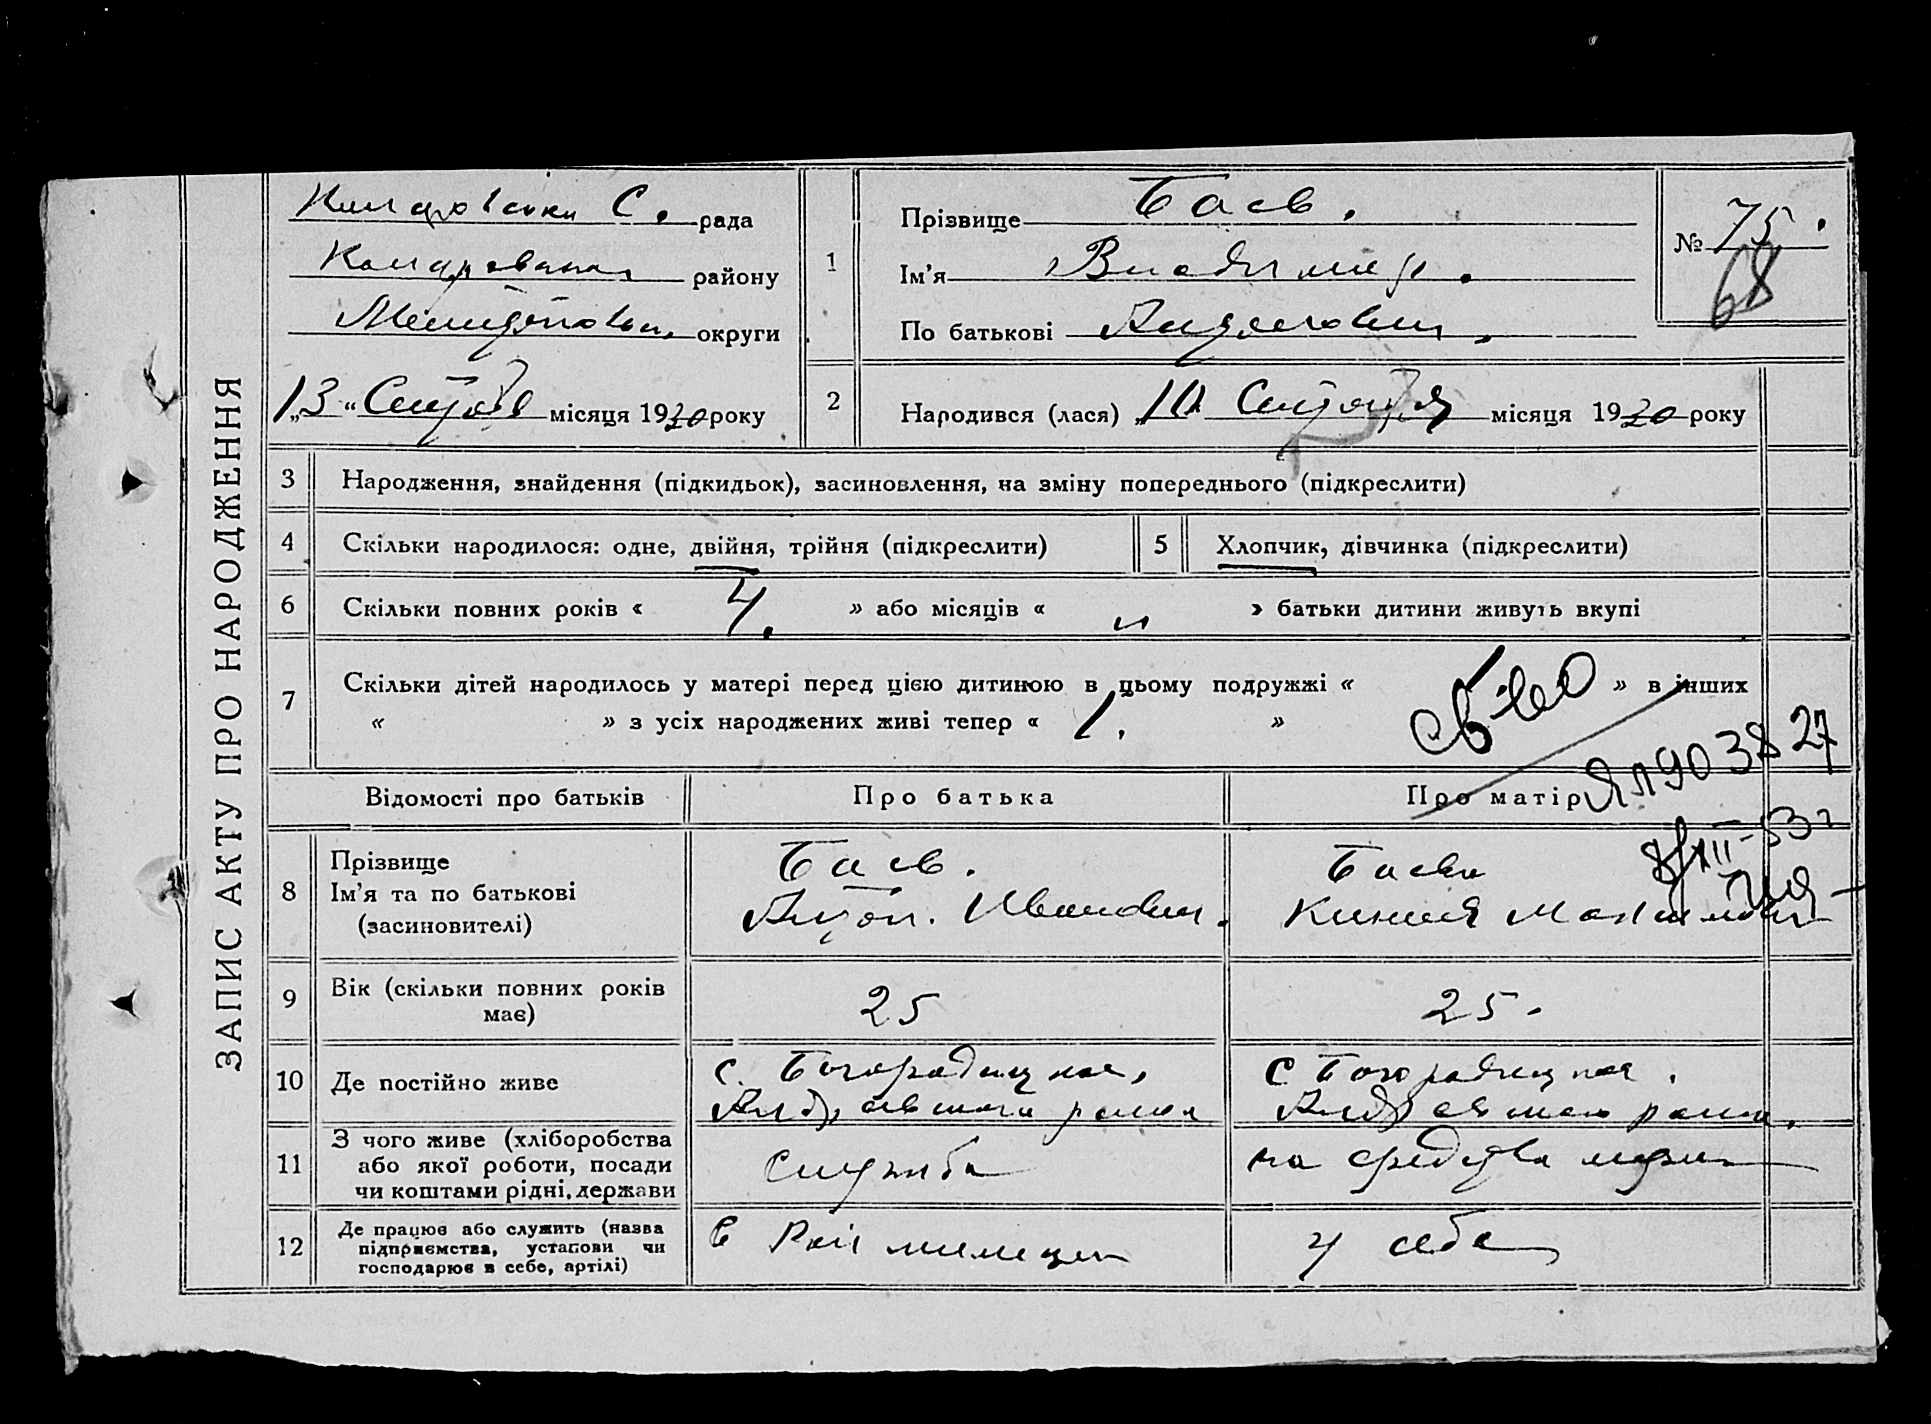 ЗАПИС АКТУ ПРО НАРОДЖЕННЯ
С. рада
району
округи
„13“ місяця 1930 року
1
Прізвище Баев.
Ім’я Владимир.
По батькові
№ 75.
68
2
Народився (лася) „10 місяця 1930 року
3 Народження, знайдення (підкидьок), засиновлення, на зміну попереднього (підкреслити)
4 Скільки народилося: одне, двійня, трійня (підкреслити)
5 Хлопчик, дівчинка (підкреслити)
6 Скільки повних років « 4. » або місяців « „ » батьки дитини живуть вкупі
7 Скільки дітей народилось у матері перед цією дитиною в цьому подружжі « » в інших
« » з усіх народжених живі тепер « 1. »
св-во
903827
Відомості про батьків Про батька Про матір
8 Прізвище
Ім’я та по батькові
(засиновителі)
Баев.
Иванович.
Баева
9 Вік (скільки повних років
має)
25
25.
10 Де постійно живе
с. Богородицкое,
района
с Богородицкое.
района.
11 З чого живе (хліборобства
або якої роботи, посади
чи коштами рідні, держави
Служба
на средства мужа
12 Де працює або служить (назва
підприємства, установи чи
господарює в себе, артілі)
в Рай милиции
у себе